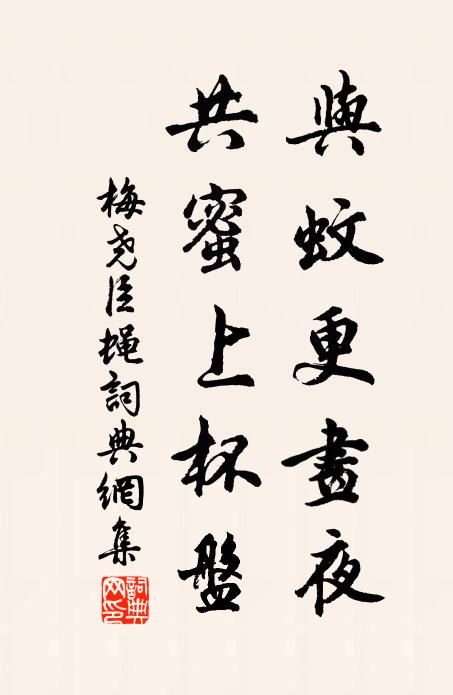 與蚊更晝夜
共蜜上杯盤
梅堯臣蠅詞典網集
詞典網印